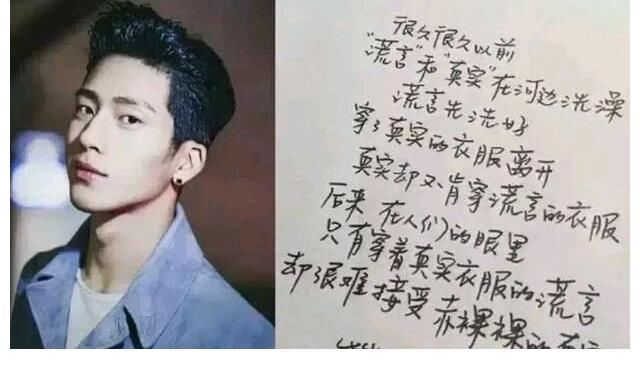 很久很久以前
“谎言”和“真实”在河边洗澡
谎言先洗好
穿了真实的衣服离开
真实却不肯穿谎言的衣服
后来 在人们的眼里
只有穿着真实衣服的谎言
却很难接受赤裸裸的